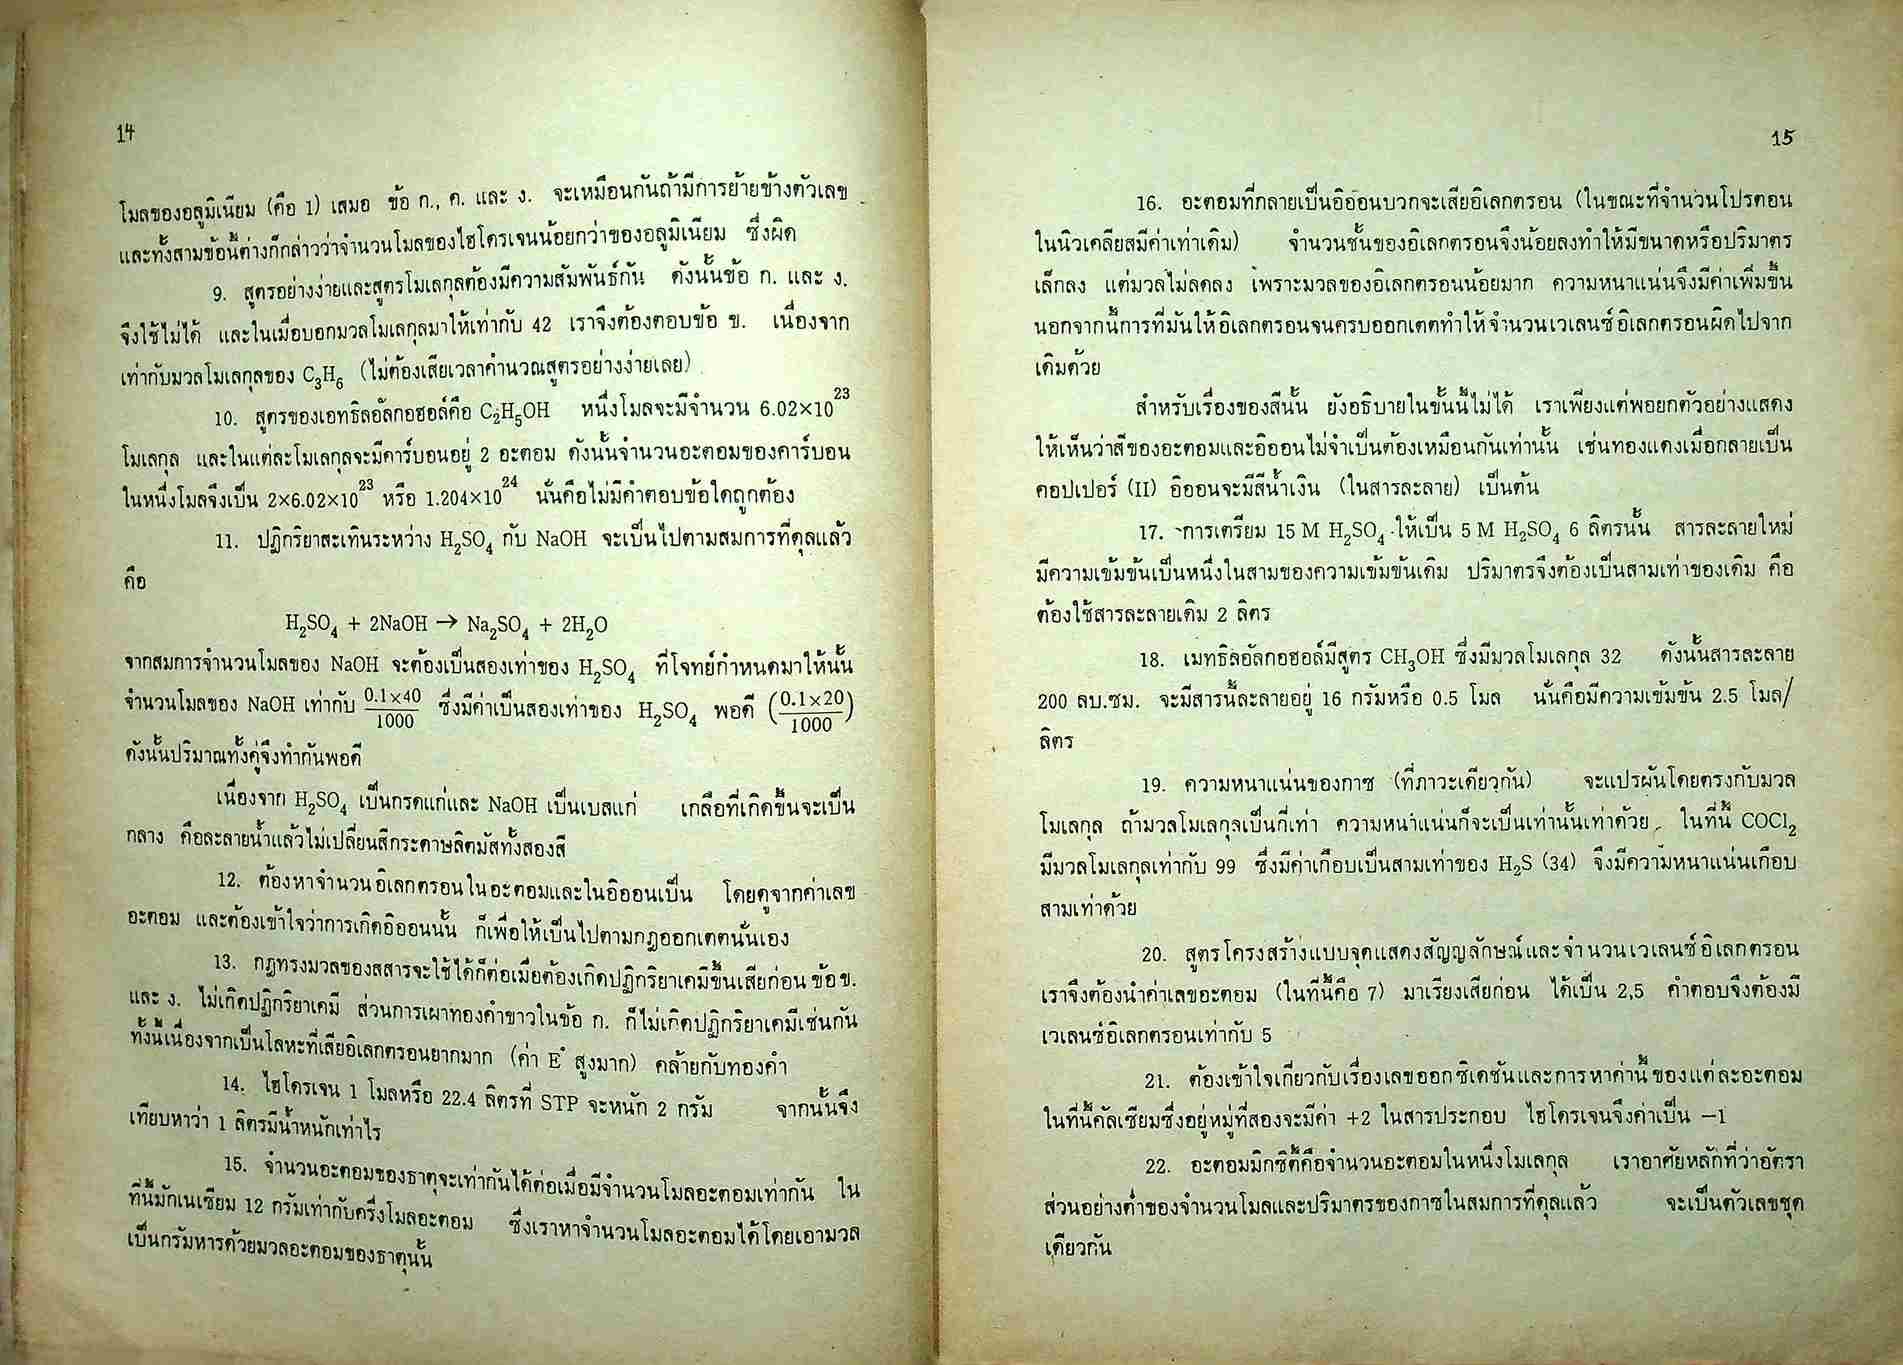 14
โมลของอลูมิเนียม (คือ 1) เสมอ ข้อ ก., ค. และ ง. จะเหมือนกันถ้ามีการย้ายข้างตัวเลข
และทั้งสามข้อนี้ต่างก็กล่าวว่าจำนวนโมลของไฮโดรเจนน้อยกว่าของอลูมิเนียม ซึ่งผิด
9. สูตรอย่างง่ายและสูตรโมเลกุลต้องมีความสัมพันธ์กัน ดังนั้นข้อ ก. และ ง.
จึงใช้ไม่ได้ และในเมื่อบอกมวลโมเลกุลมาให้เท่ากับ 42 เราจึงต้องตอบข้อ ข. เนื่องจาก
เท่ากับมวลโมเลกุลของ C₃H₆ (ไม่ต้องเสียเวลาคำนวณสูตรอย่างง่ายเลย)
10. สูตรของเอทธิลอัลกอฮอล์คือ C₂H₅OH หนึ่งโมลจะมีจำนวน 6.02×10²³
โมเลกุล และในแต่ละโมเลกุลจะมีคาร์บอนอยู่ 2 อะตอม ดังนั้นจำนวนอะตอมของคาร์บอน
ในหนึ่งโมลจึงเป็น 2×6.02×10²³ หรือ 1.204×10²⁴ นั่นคือไม่มีคำตอบข้อใดถูกต้อง
11. ปฏิกริยาสะเทินระหว่าง H₂SO₄ กับ NaOH จะเป็นไปตามสมการที่ดุลแล้ว
คือ
H₂SO₄ + 2NaOH → Na₂SO₄ + 2H₂O
จากสมการจำนวนโมลของ NaOH จะต้องเป็นสองเท่าของ H₂SO₄ ที่โจทย์กำหนดมาให้นั้น
จำนวนโมลของ NaOH เท่ากับ 0.1×40/1000 ซึ่งมีค่าเป็นสองเท่าของ H₂SO₄ พอดี (0.1×20/1000)
ดังนั้นปริมาณทั้งคู่จึงทำกันพอดี
เนื่องจาก H₂SO₄ เป็นกรดแก่และ NaOH เป็นเบสแก่ เกลือที่เกิดขึ้นจะเป็น
กลาง คือละลายน้ำแล้วไม่เปลี่ยนสีกระดาษลิตมัสทั้งสองสี
12. ต้องหาจำนวนอิเลกตรอนในอะตอมและในอิออนเป็น โดยดูจากค่าเลข
อะตอม และต้องเข้าใจว่าการเกิดอิออนนั้น ก็เพื่อให้เป็นไปตามกฎออกเตตนั่นเอง
13. กฎทรงมวลของสสารจะใช้ได้ก็ต่อเมื่อต้องเกิดปฏิกริยาเคมีขึ้นเสียก่อน ข้อ ข.
และ ง. ไม่เกิดปฏิกริยาเคมี ส่วนการเผาทองคำขาวในข้อ ก. ก็ไม่เกิดปฏิกริยาเคมีเช่นกัน
ทั้งนี้เนื่องจากเป็นโลหะที่เสียอิเลกตรอนยากมาก (ค่า E° สูงมาก) คล้ายกับทองคำ
14. ไฮโดรเจน 1 โมลหรือ 22.4 ลิตรที่ STP จะหนัก 2 กรัม จากนั้นจึง
เทียบหาว่า 1 ลิตรมีน้ำหนักเท่าไร
15. จำนวนอะตอมของธาตุจะเท่ากันได้ต่อเมื่อมีจำนวนโมลอะตอมเท่ากัน ใน
ที่นี้มักเนเซียม 12 กรัมเท่ากับครึ่งโมลอะตอม ซึ่งเราหาจำนวนโมลอะตอมได้โดยเอามวล
เป็นกรัมหารด้วยมวลอะตอมของธาตุนั้น
15
16. อะตอมที่กลายเป็นอิออนบวกจะเสียอิเลกตรอน (ในขณะที่จำนวนโปรตอน
ในนิวเคลียสมีค่าเท่าเดิม) จำนวนชั้นของอิเลกตรอนจึงน้อยลงทำให้มีขนาดหรือปริมาตร
เล็กลง แต่มวลไม่ลดลง เพราะมวลของอิเลกตรอนน้อยมาก ความหนาแน่นจึงมีค่าเพิ่มขึ้น
นอกจากนี้การที่มันให้อิเลกตรอนจนครบออกเตตทำให้จำนวนเวเลนซ์อิเลกตรอนผิดไปจาก
เดิมด้วย
สำหรับเรื่องของสีนั้น ยังอธิบายในขั้นนี้ไม่ได้ เราเพียงแต่พอยกตัวอย่างแสดง
ให้เห็นว่าสีของอะตอมและอิออนไม่จำเป็นต้องเหมือนกันเท่านั้น เช่นทองแดงเมื่อกลายเป็น
คอปเปอร์ (II) อิออนจะมีสีน้ำเงิน (ในสารละลาย) เป็นต้น
17. การเตรียม 15 M H₂SO₄ ให้เป็น 5 M H₂SO₄ 6 ลิตรนั้น สารละลายใหม่
มีความเข้มข้นเป็นหนึ่งในสามของความเข้มข้นเดิม ปริมาตรจึงต้องเป็นสามเท่าของเดิม คือ
ต้องใช้สารละลายเดิม 2 ลิตร
18. เมทธิลอัลกอฮอล์มีสูตร CH₃OH ซึ่งมีมวลโมเลกุล 32 ดังนั้นสารละลาย
200 ลบ.ซม. จะมีสารนี้ละลายอยู่ 16 กรัมหรือ 0.5 โมล นั่นคือมีความเข้มข้น 2.5 โมล/
ลิตร
19. ความหนาแน่นของกาซ (ที่ภาวะเดียวกัน) จะแปรผันโดยตรงกับมวล
โมเลกุล ถ้ามวลโมเลกุลเป็นกี่เท่า ความหนาแน่นก็จะเป็นเท่านั้นเท่าด้วย ในที่นี้ COCl₂
มีมวลโมเลกุลเท่ากับ 99 ซึ่งมีค่าเกือบเป็นสามเท่าของ H₂S (34) จึงมีความหนาแน่นเกือบ
สามเท่าด้วย
20. สูตรโครงสร้างแบบจุดแสดงสัญญลักษณ์และจำนวนเวเลนซ์อิเลกตรอน
เราจึงต้องนำค่าเลขอะตอม (ในที่นี้คือ 7) มาเรียงเสียก่อน ได้เป็น 2,5 คำตอบจึงต้องมี
เวเลนซ์อิเลกตรอนเท่ากับ 5
21. ต้องเข้าใจเกี่ยวกับเรื่องเลขออกซิเดชันและการหาค่านี้ของแต่ละอะตอม
ในที่นี้คัลเซียมซึ่งอยู่หมู่ที่สองจะมีค่า +2 ในสารประกอบ ไฮโดรเจนจึงค่าเป็น −1
22. อะตอมมิกซิตี้คือจำนวนอะตอมในหนึ่งโมเลกุล เราอาศัยหลักที่ว่าอัตรา
ส่วนอย่างต่ำของจำนวนโมลและปริมาตรของกาซในสมการที่ดุลแล้ว จะเป็นตัวเลขชุด
เดียวกัน